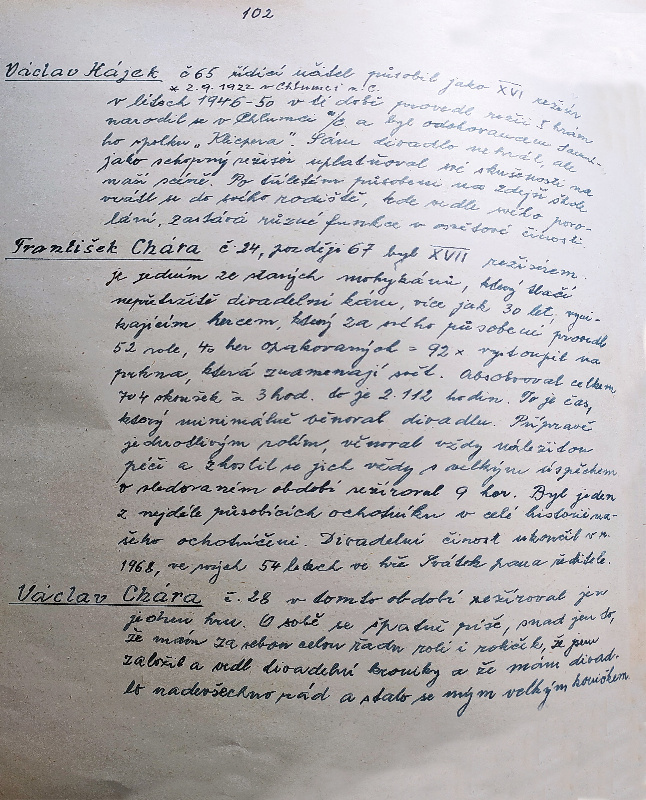 102
Václav Hájek č 65 řídící učitel působil jako XVI režisér
* 2.9.1922 v Chlumci n. C.
v létech 1946-50 v té době provedl režii 5 hrám
narodil se v Chlumci n/C. a byl odchovancem tamní-
ho spolku „Klicpera". Sám divadlo nehrál, ale
jako schopný režisér uplatňoval své zkušenosti na
naší scéně. Po tříletém působení na zdejší škole
vrátil se do svého rodiště, kde vedle svého povo-
lání, zastává různé funkce v osvětové činosti.
František Chára č. 24, později 67 byl XVII režisérem.
Je jedním ze starých mohykánů, který tlačí
nepřetržitě divadelní káru, více jak 30 let, vyni-
kajícím hercem, který za svého působení provedl
52 role, 40 her opakovaných = 92 x vystoupil na
prkna, která znamenají svět. Absolvoval celkem
704 zkoušek à 3 hod. to je 2.112 hodin. To je čas,
který minimálně věnoval divadlu. Přípravě
jednotlivým rolím, věnoval vždy náležitou
péči a zhostil se jich vždy s velkým úspěchem
v sledovaném období režíroval 9 her. Byl jeden
z nejdéle působících ochotníků v celé historii na-
šeho ochotničení. Divadelní činost ukončil v r.
1968, ve svých 54 letech ve hře Svátek pana ředitele.
Václav Chára č. 28 v tomto období režíroval jen
jednu hru. O sobě se špatně píše, snad jen to,
že mám za sebou celou řadu rolí i roliček, že jsem
založil a vedl divadelní kroniky a že mám divad-
lo nadevšechno rád a stalo se mým velkým koníčkem